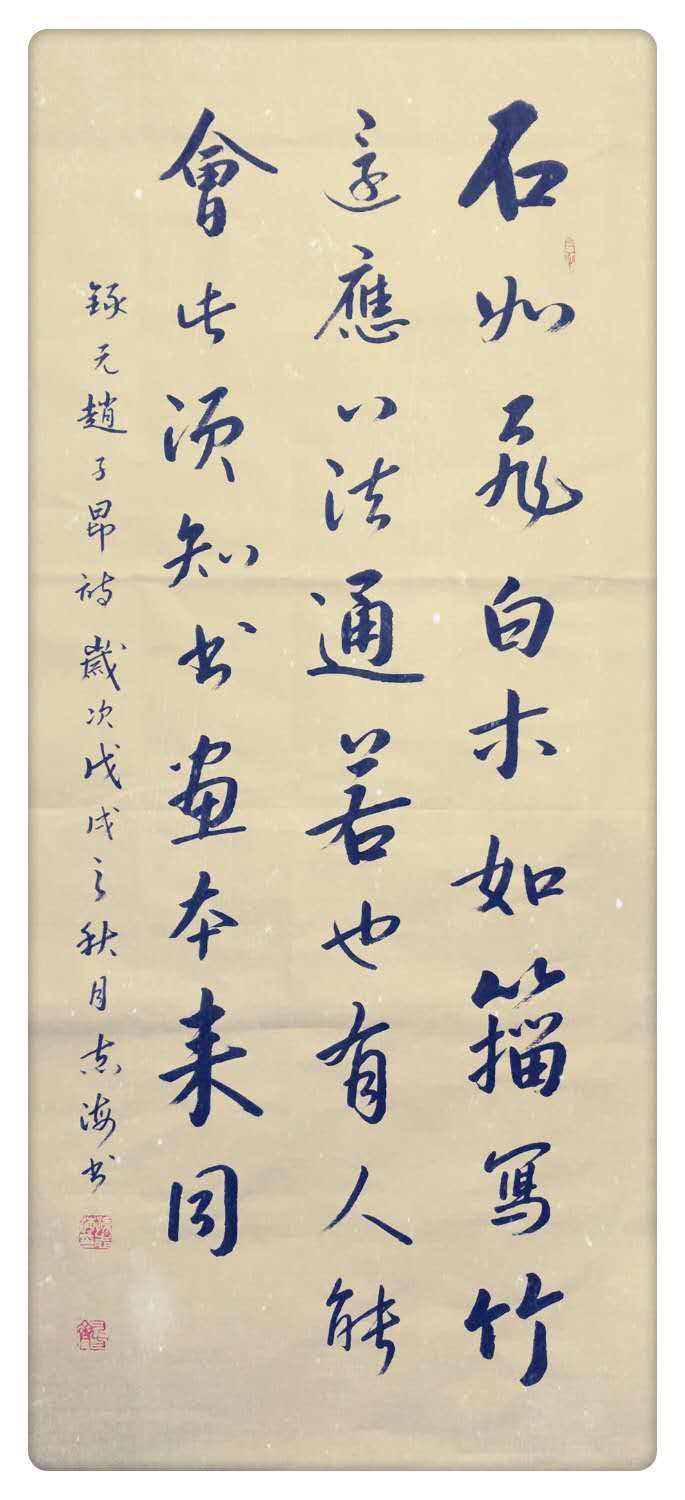 石如飛白木如籀寫竹
還應八法通若也有人能
會此須知書畫本來同
錄元趙子昂詩歲次戊戌之秋月志海書